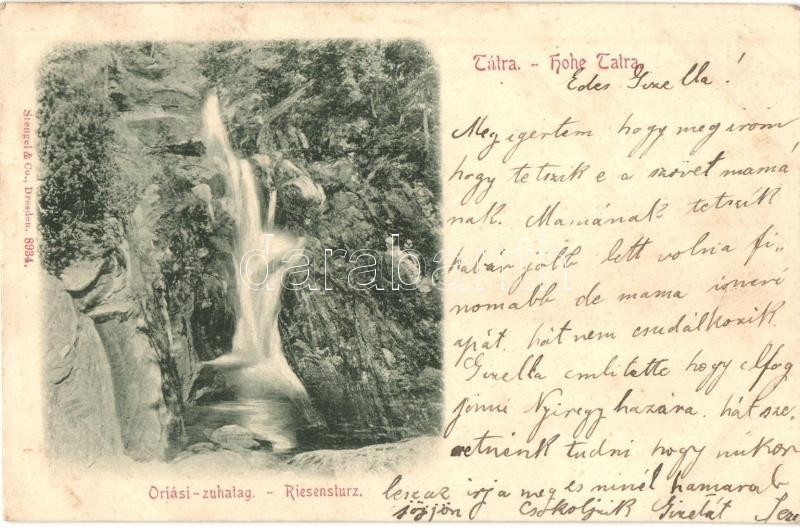 Tátra. - Hohe Tatra.
Edes Gizella!
Megigertem hogy megirom
hogy tetszik e a szövet mamá
nak. Mamának tetszik
habár jobb lett volna fi-
nomabb de mama ismeri
apát. hát nem csudálkozik.
Gizella emlitette hogy elfog
jönni Nyiregyhazára. hát sze-
retnénk tudni hogy mikor
lesz az irja meg es minél hamarab
jöjjön Csokoljuk Gizellát
Oriási-zuhatag. - Riesensturz.
Stengel & Co., Dresden. 8984.
darabanth